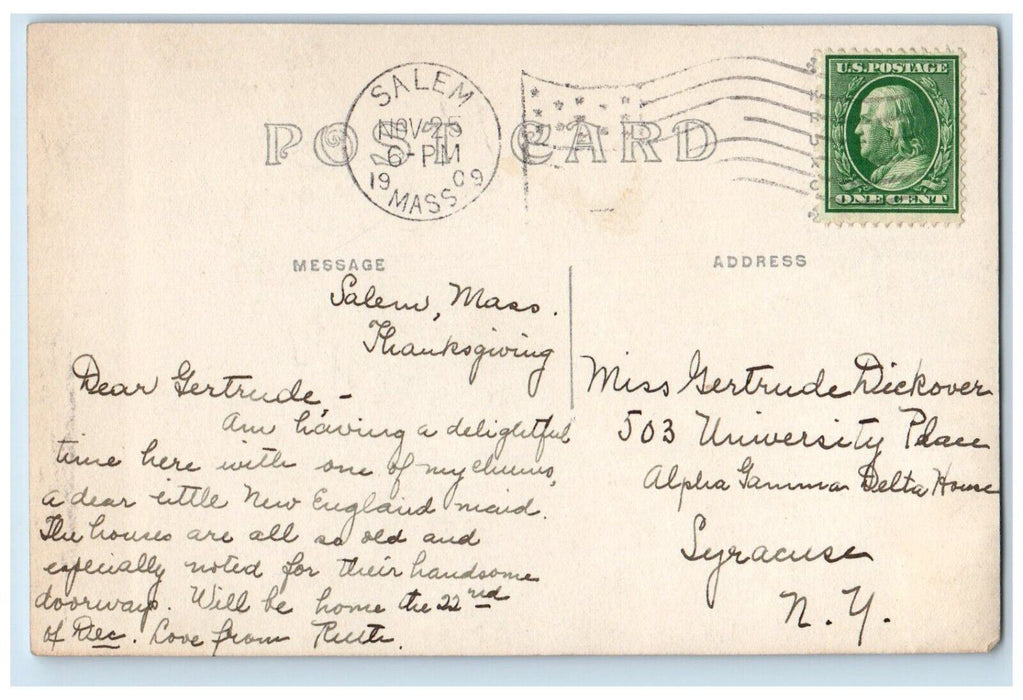 U.S. POSTAGE
SALEM
NOV 25
6-PM
1909
MASS.
POST CARD
ONE CENT
MESSAGE
ADDRESS
Salem, Mass.
Thanksgiving
Dear Gertrude, -
Am having a delightful
time here with one of my chums,
a dear little New England maid.
The houses are all so old and
especially noted for their handsome
doorways. Will be home the 22nd
of Dec. Love from Ruth.
Miss Gertrude Dickover
503 University Place
Alpha Gamma Delta House
Syracuse
N. Y.